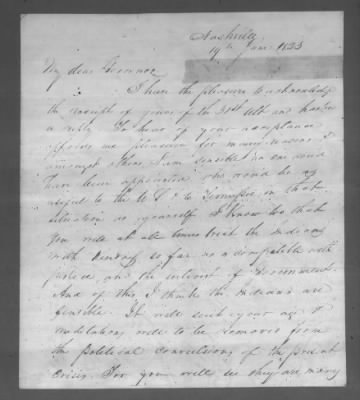 Nashville
19th Jany 1833
My dear Governor
I have the pleasure to acknowledge
the receipt of yours of the 31st Ult and hasten
a reply. To hear of your acceptance
affords me pleasure for many reasons &
amongst them I am sensible no one could
have been appointed who would be as
useful to the U S & to Tennessee in that
situation as yourself. I know too that
you will at all times treat the Indians
with kindness so far as is compatible with
justice and the interest of Government.
And of this I think the Indians are
sensible. It will suit your age &
well to be removed from
the political convulsions of the present
crisis. For you will see they are many